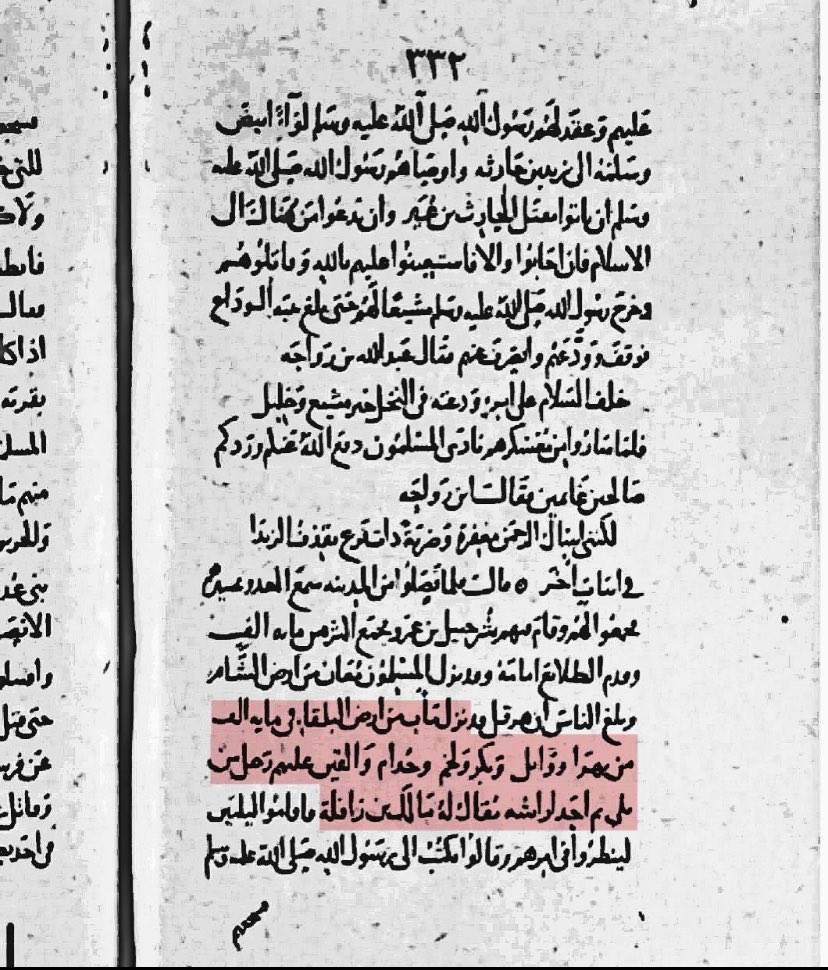 ٣٣٢
عليهم وعقد لهم رسول الله صلى الله عليه وسلم لوآءً ابيض
وسلمه الى زيد بن حارثه واوصاهم رسول الله صلى الله عليه
وسلم ان ياتوا مقتل الحارث بن عمير وان يدعوا من هناك الى
الاسلام فان اجابوا والا فاستعينوا عليهم بالله وقاتلوهم
وخرج رسول الله صلى الله عليه وسلم مشيعا لهم حتى بلغ ثنيه الوداع
فوقف وودعهم وانصرف عنهم فقال عبد الله بن رواحه
خلف السلام على امرئ ودعته في النخل خير مشيع وخليل
فلما ساروا من معسكرهم نادى المسلمون دفع الله عنكم وردكم
صالحين غانمين فقال ابن رواحه
لكنني اسال الرحمن مغفرة وضربة ذات فرع يقذف الزبدا
في ابيات أخر ٥ قال فلما فصلوا من المدينه سمع العدو بمسيرهم
فجمعوا لهم وقام فيهم شرحبيل بن عمرو فجمع اكثر من مايه الف
وقدم الطلائع امامه وقد نزل المسلمون معان من ارض الشام
وبلغ الناس ان هرقل قد نزل مأب من ارض البلقا في مايه الف
من بهرا ووائل وبكر ولخم وجذام والقين عليهم رجل من
بلي ثم احد اراشه يقال له مالك بن زافلة فاقاموا ليلتين
لينظروا في امرهم وقالوا نكتب الى رسول الله صلى الله عليه وسلم